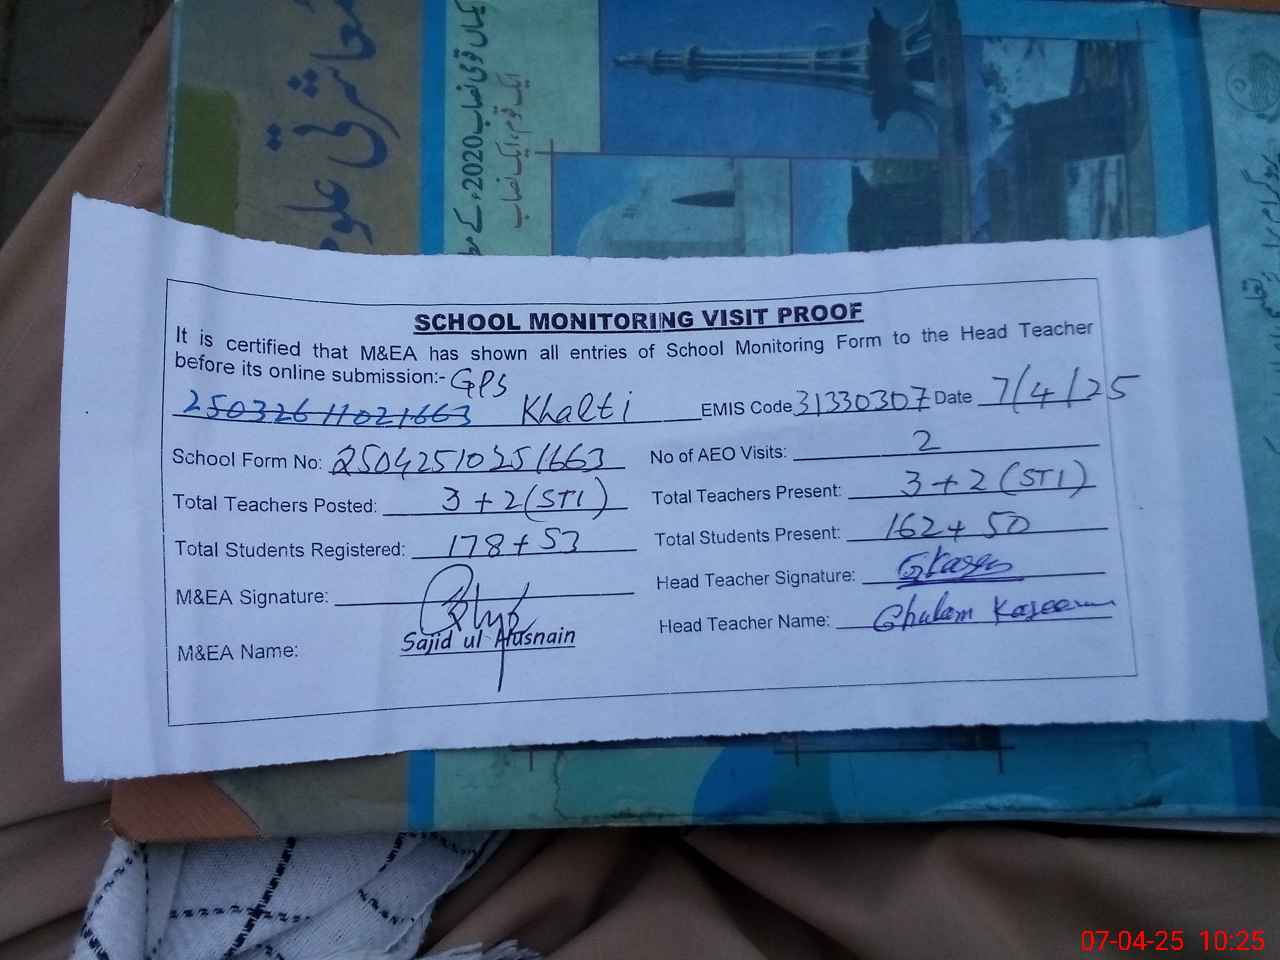 معاشرتی علوم
یکساں قومی نصاب 2020ء کے
ایک قوم، ایک نصاب
SCHOOL MONITORING VISIT PROOF
It is certified that M&EA has shown all entries of School Monitoring Form to the Head Teacher
before its online submission:- GPS
25032611021663 Khalti EMIS Code 31330307 Date 7/4/25
School Form No: 25042510251663 No of AEO Visits: 2
Total Teachers Posted: 3+2(STI) Total Teachers Present: 3+2(STI)
Total Students Registered: 178+53 Total Students Present: 162+50
M&EA Signature: Head Teacher Signature:
M&EA Name: Sajid ul Husnain Head Teacher Name: Ghulam Kaseem
07-04-25 10:25